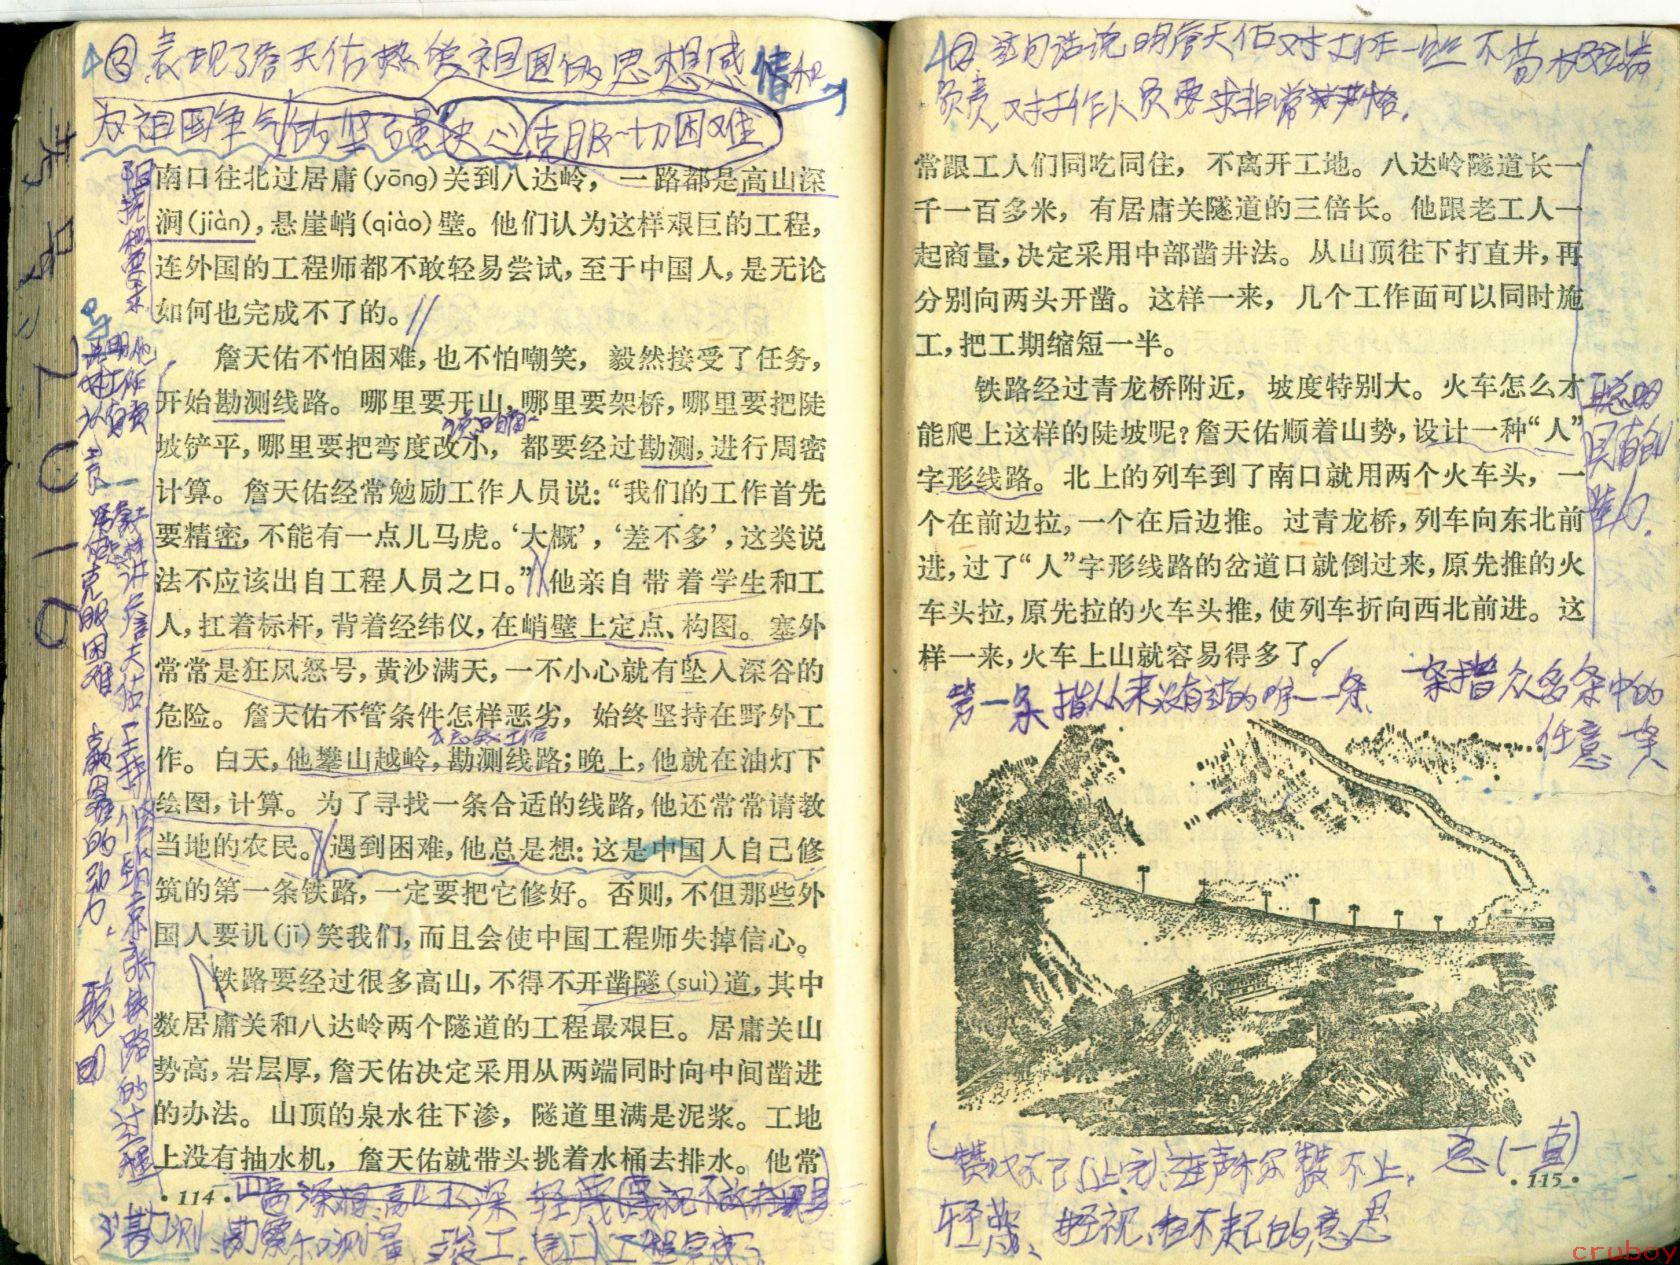 表现了詹天佑热爱祖国的思想感情和
为祖国争气的坚强决心 克服一切困难
南口往北过居庸(yōng)关到八达岭，一路都是高山深
涧(jiàn)，悬崖峭(qiào)壁。他们认为这样艰巨的工程，
连外国的工程师都不敢轻易尝试，至于中国人，是无论
如何也完成不了的。
詹天佑不怕困难，也不怕嘲笑，毅然接受了任务，
开始勘测线路。哪里要开山，哪里要架桥，哪里要把陡
坡铲平，哪里要把弯度改小，都要经过勘测，进行周密
计算。詹天佑经常勉励工作人员说：“我们的工作首先
要精密，不能有一点儿马虎。‘大概’，‘差不多’，这类说
法不应该出自工程人员之口。”他亲自带着学生和工
人，扛着标杆，背着经纬仪，在峭壁上定点、构图。塞外
常常是狂风怒号，黄沙满天，一不小心就有坠入深谷的
危险。詹天佑不管条件怎样恶劣，始终坚持在野外工
作。白天，他攀山越岭，勘测线路；晚上，他就在油灯下
绘图，计算。为了寻找一条合适的线路，他还常常请教
当地的农民。遇到困难，他总是想：这是中国人自己修
筑的第一条铁路，一定要把它修好。否则，不但那些外
国人要讥(jī)笑我们，而且会使中国工程师失掉信心。
铁路要经过很多高山，不得不开凿隧(suì)道，其中
数居庸关和八达岭两个隧道的工程最艰巨。居庸关山
势高，岩层厚，詹天佑决定采用从两端同时向中间凿进
的办法。山顶的泉水往下渗，隧道里满是泥浆。工地
上没有抽水机，詹天佑就带头挑着水桶去排水。他常
·114·
勘测 测量 竣工 完工 工程完成
这句话说明詹天佑对工作一丝不苟
负责，对工作人员要求非常严格。
常跟工人们同吃同住，不离开工地。八达岭隧道长一
千一百多米，有居庸关隧道的三倍长。他跟老工人一
起商量，决定采用中部凿井法。从山顶往下打直井，再
分别向两头开凿。这样一来，几个工作面可以同时施
工，把工期缩短一半。
铁路经过青龙桥附近，坡度特别大。火车怎么才
能爬上这样的陡坡呢？詹天佑顺着山势，设计一种“人”
字形线路。北上的列车到了南口就用两个火车头，一
个在前边拉，一个在后边推。过青龙桥，列车向东北前
进，过了“人”字形线路的岔道口就倒过来，原先推的火
车头拉，原先拉的火车头推，使列车折向西北前进。这
样一来，火车上山就容易得多了。
聪明
具有创
造力.
第一条 指从来没有过的唯一一条
一条指众多条中的
任意一条
赞叹不已(止,完)连声称赞不止.
总(一直)
轻蔑、轻视,看不起的意思
·115·
cruboy